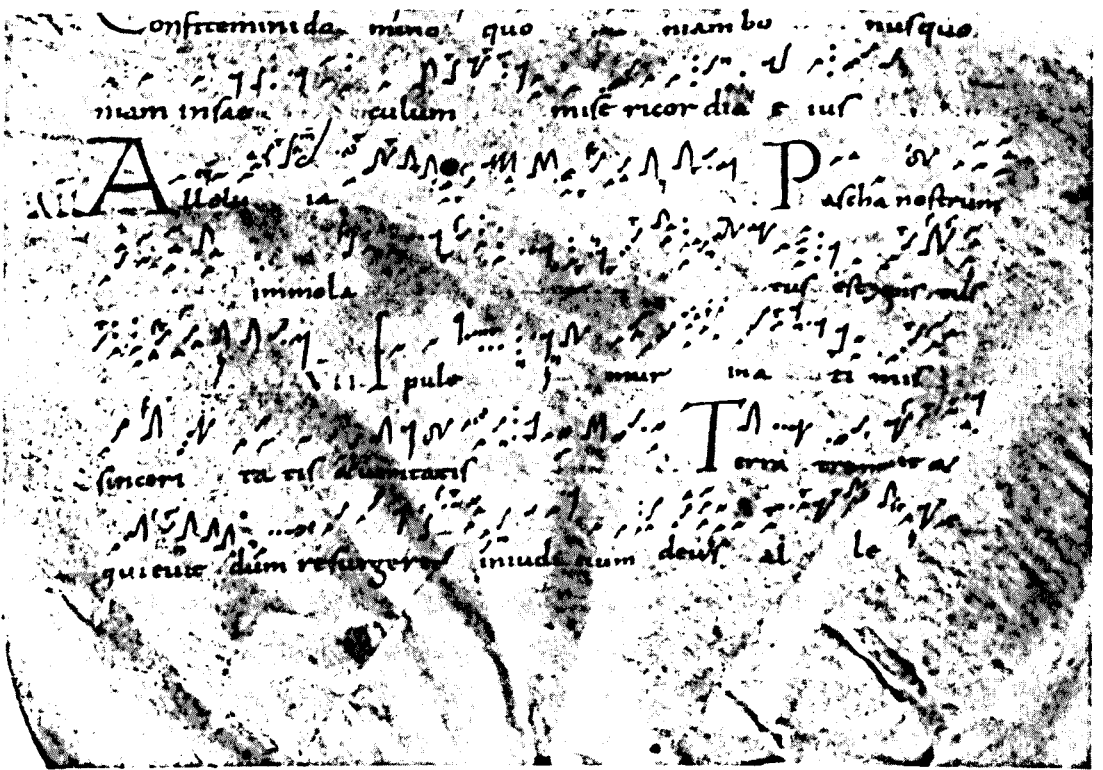 Confitemini do mino quo niam bo nus quo
niam in sae culum mise ricor dia e ius
Allelu ia Pascha nostrum
immola tus est
Epule mur in a zi mis
sinceri ta tis & ueritatis Terra tremuit &
quieuit dum resurgeret in iudi cium deus al le